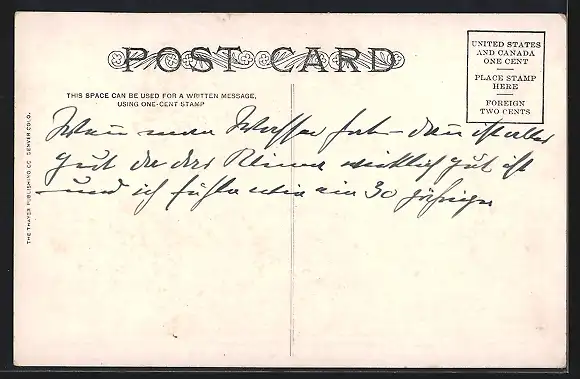 POST CARD
UNITED STATES
AND CANADA
ONE CENT
PLACE STAMP
HERE
FOREIGN
TWO CENTS
THIS SPACE CAN BE USED FOR A WRITTEN MESSAGE,
USING ONE-CENT STAMP
Wenn man Wasser hat – dann ist alles
gut da das Klima wirklich gut ist
– und ich fühle wie ein 30 jähriger
THE THAYER PUBLISHING CO. DENVER COLO.